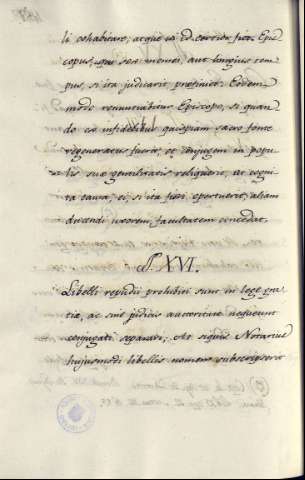 li cohabitare, atque id certior fiat Epis-
copus, qui sex menses aut longius tem-
pus, si ita judicarit præfiniet. Eodem
modo renuntiabitur Episcopo, si quan-
do ex infidelibus quispiam sacro fonte
regeneratus fuerit, et conjugem in popu-
lis suæ gentilitatis reliquerit, ut cogni-
ta causa, ei, si ita fieri oportuerit, aliam
ducendi uxorem, facultatem concedat.
§. XVI.
Libelli repudii prohibiti sunt in lege gra-
tiæ, ac sine judicis auctoritate nequeunt
conjugati separari; At siquis Notarius
hujusmodi libellis nomen subscripserit